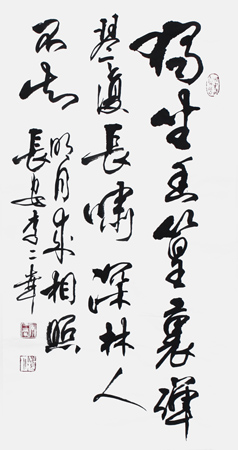 獨坐幽篁裏彈
琴復長嘯深林人
不知
明月來相照
長安李二